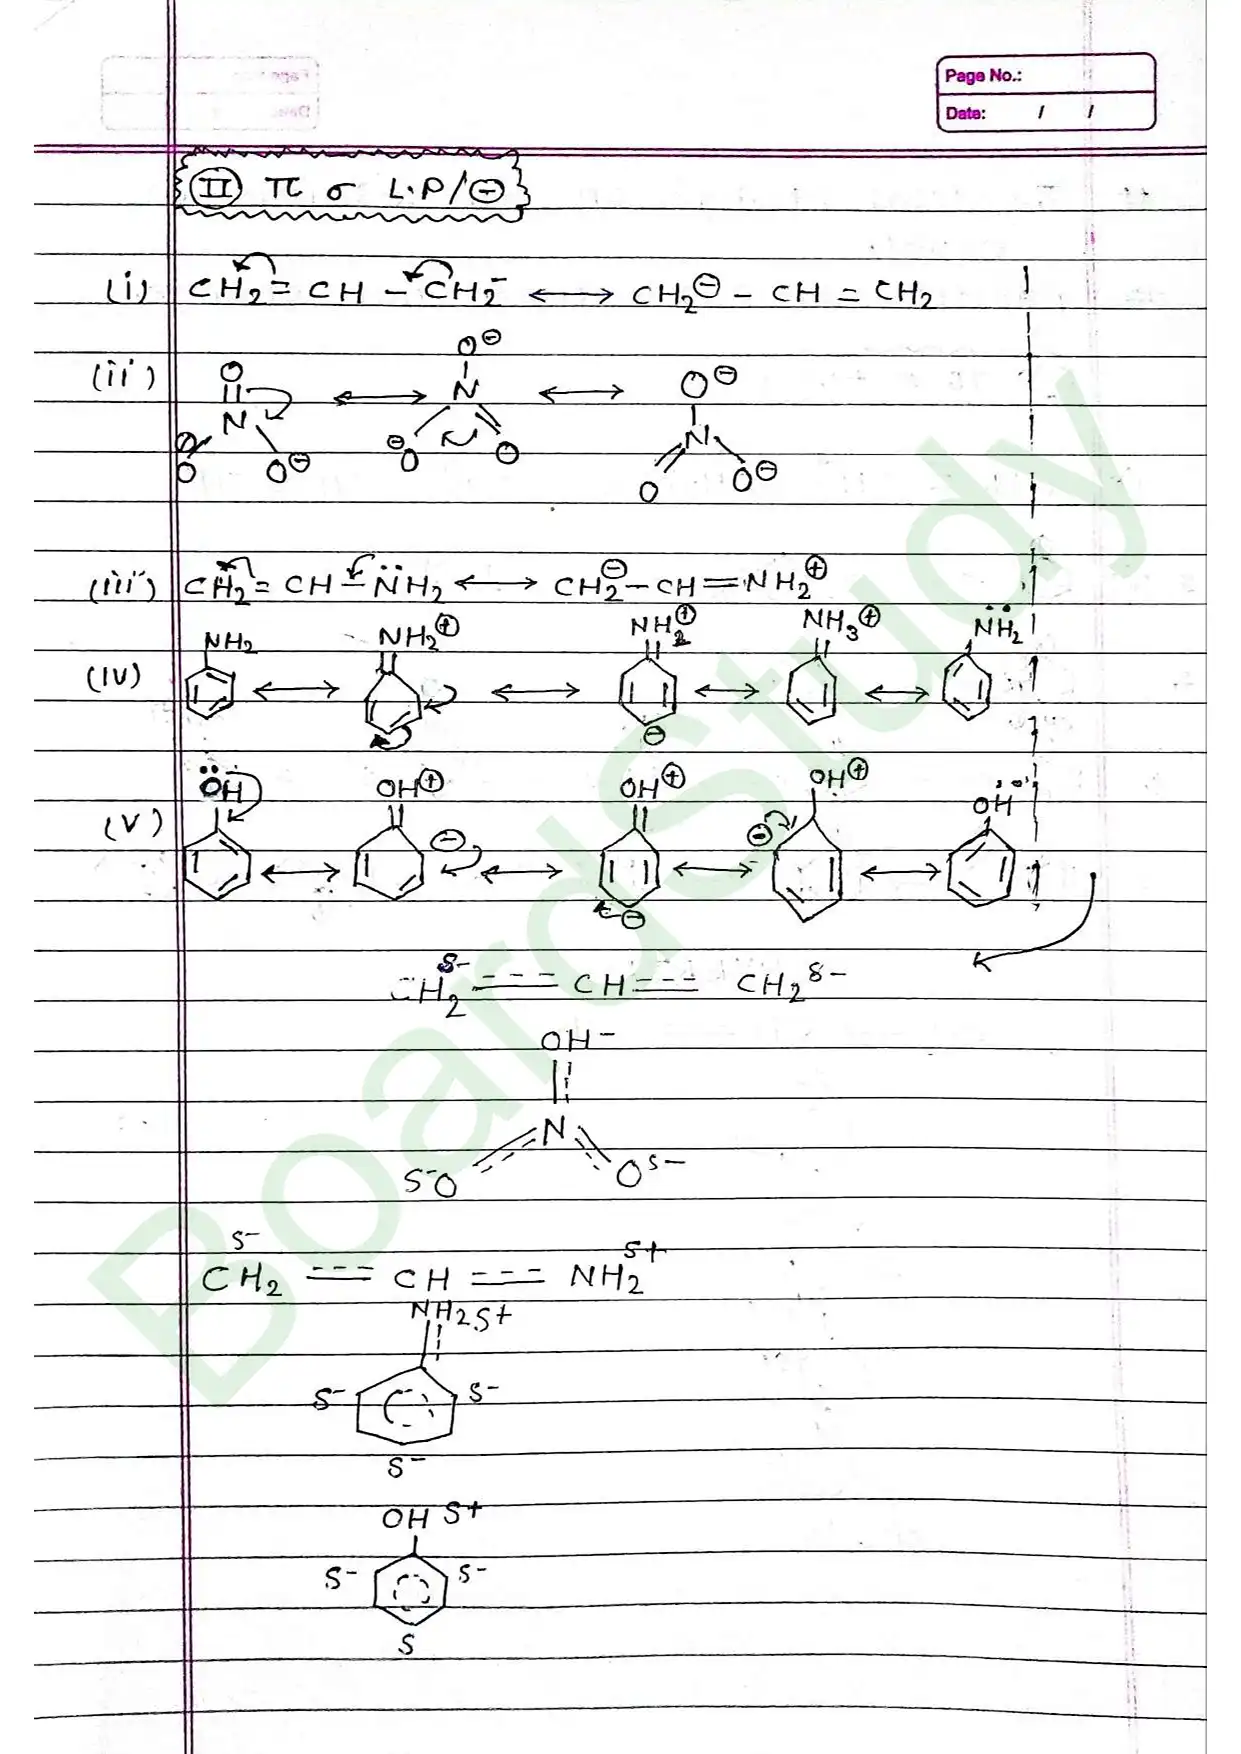 Page No.:
Date: / /
II π σ L.P/⊖
(i) CH₂ = CH - CH₂⁻ ⟷ CH₂⊖ - CH = CH₂
(ii) O ⟷ O⊖ ⟷ O⊖
N N N
⊖O O⊖ ⊖O O O O⊖
(iii) CH₂ = CH - N̈H₂ ⟷ CH₂⊖ - CH = NH₂⊕
(iv) NH₂ ⟷ NH₂⊕ ⟷ NH₂⊕ ⟷ NH₃⊕ ⟷ N̈H₂
⊖
(v) ÖH ⟷ OH⊕ ⟷ OH⊕ ⟷ OH⊕ ⟷ OH
⊖ ⊖ ⊖
CH₂ δ- === CH === CH₂ δ-
OH -
N
δ-O O δ-
δ- δ+
CH₂ === CH === NH₂
NH₂ δ+
δ- δ-
δ-
OH δ+
δ- δ-
δ
BoardStudy